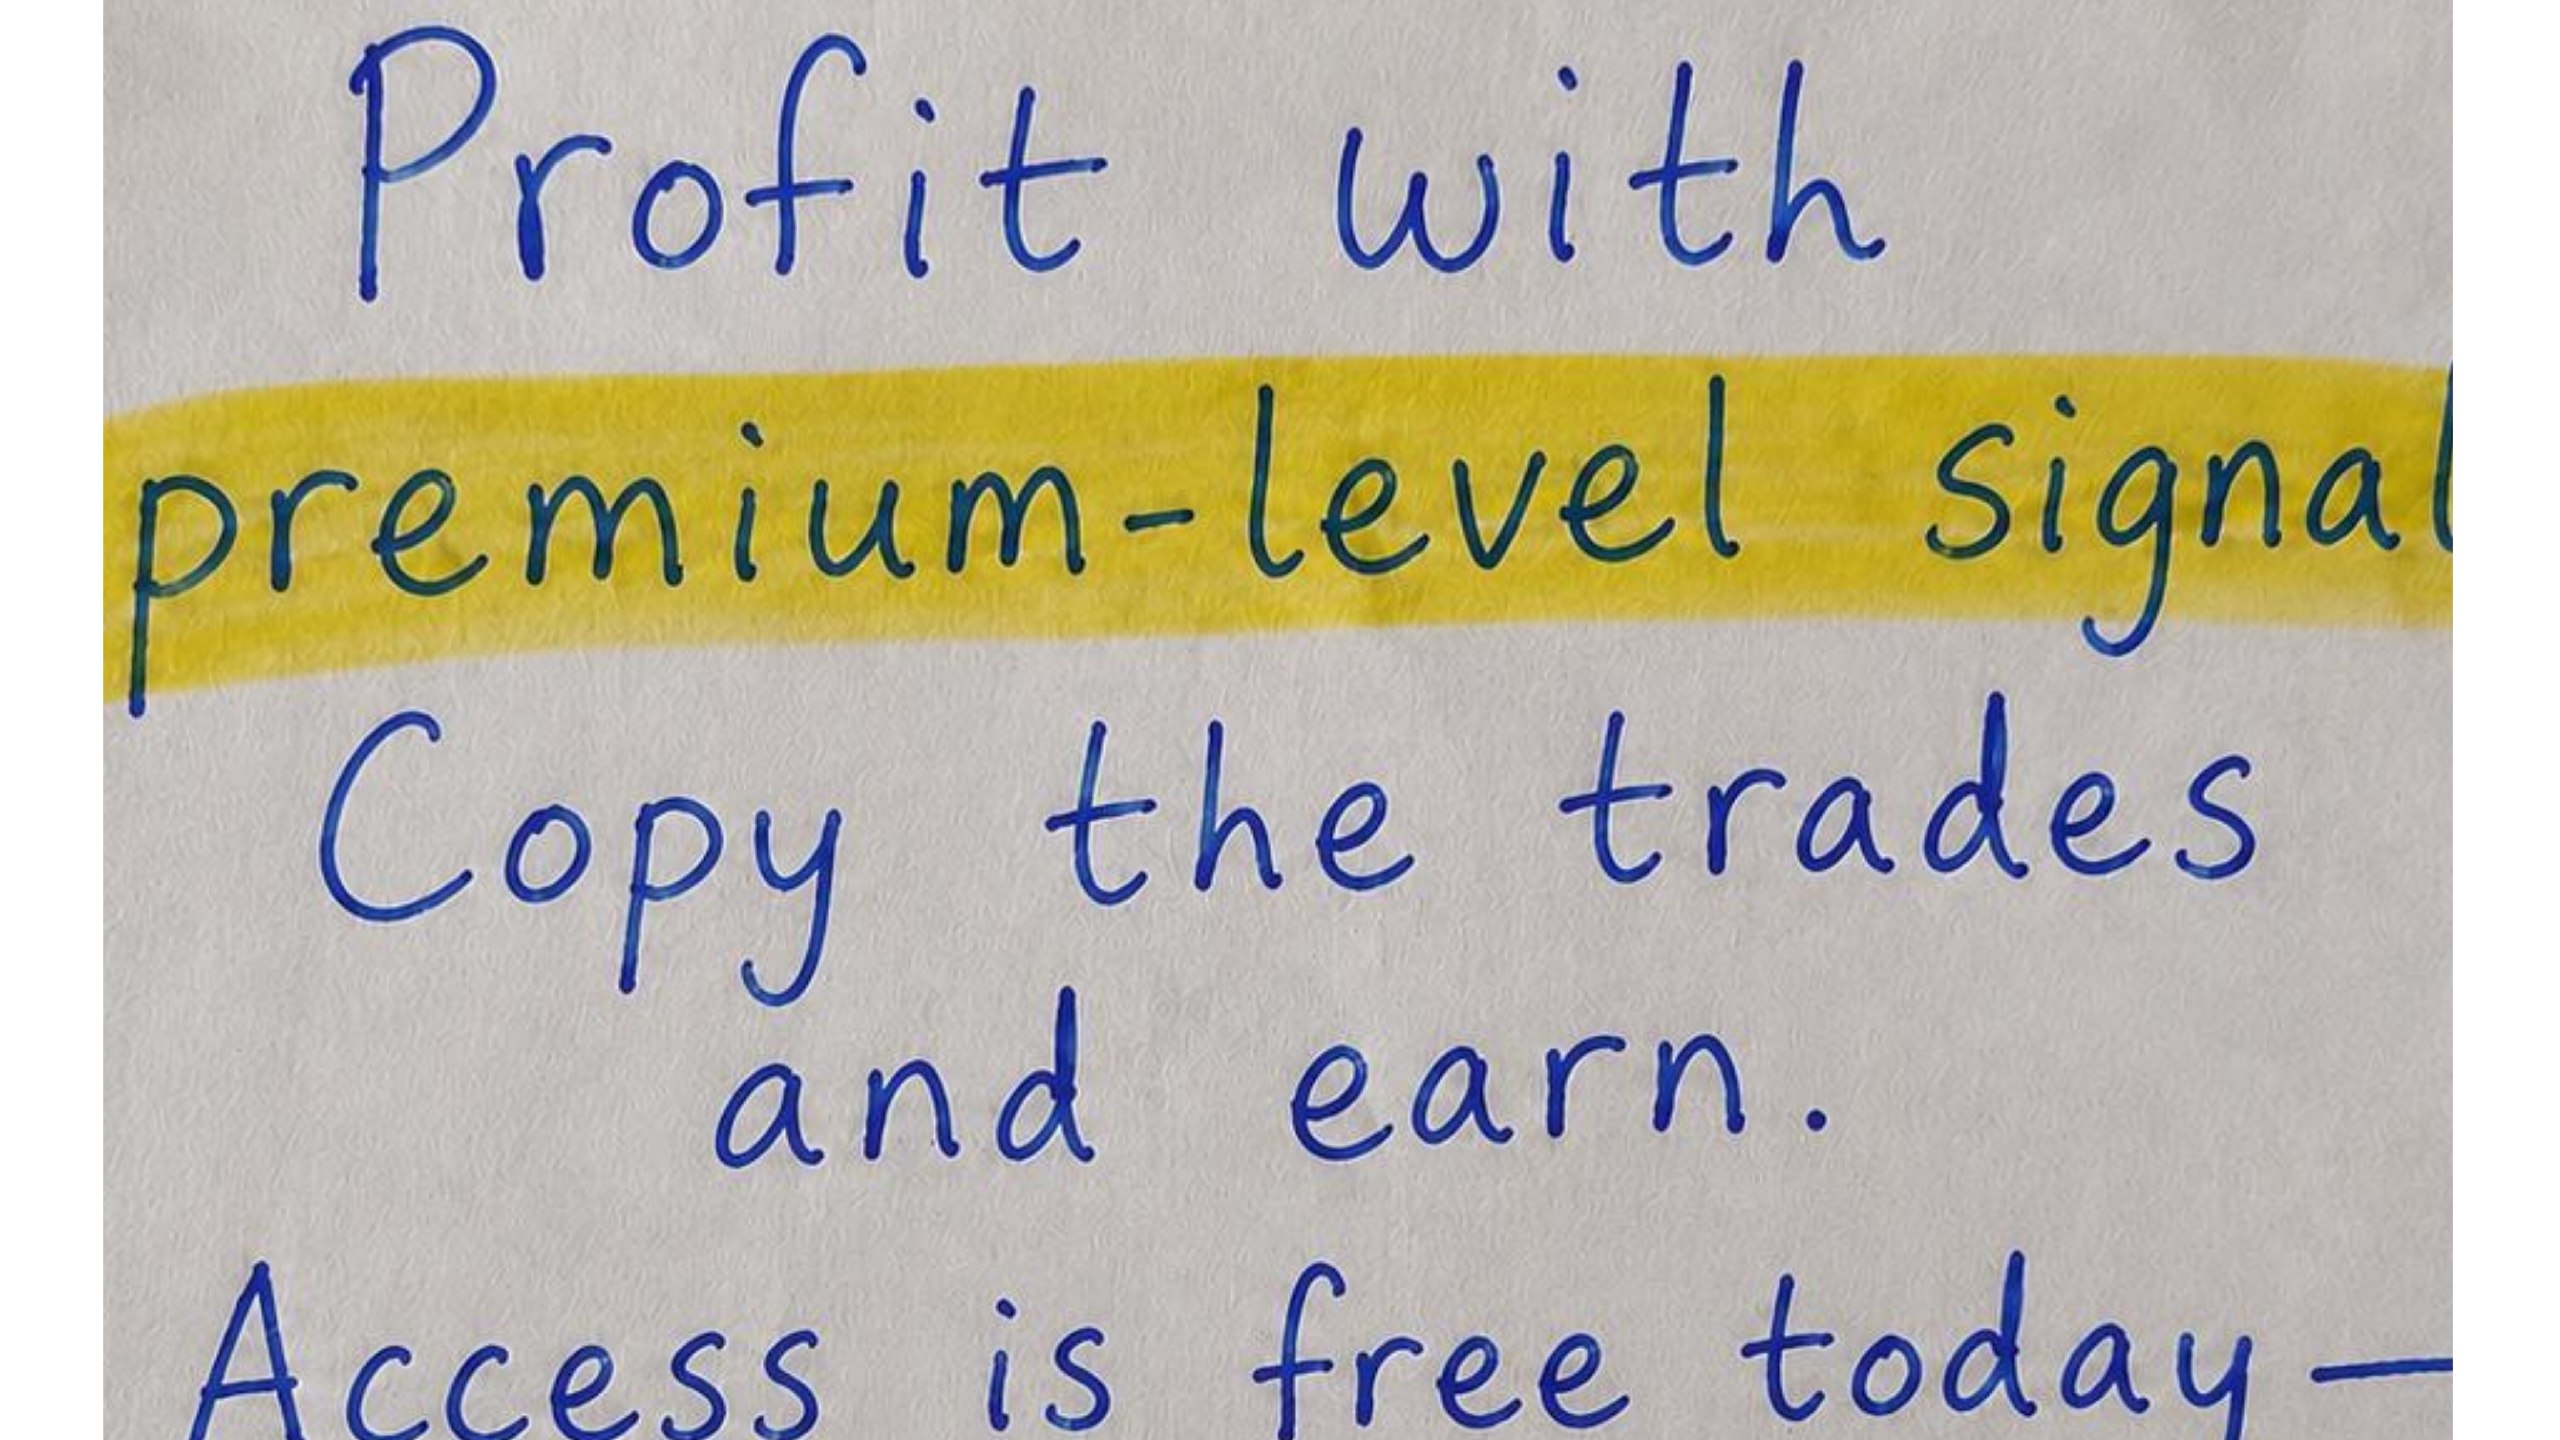 Profit with
premium-level signal
Copy the trades
and earn.
Access is free today—